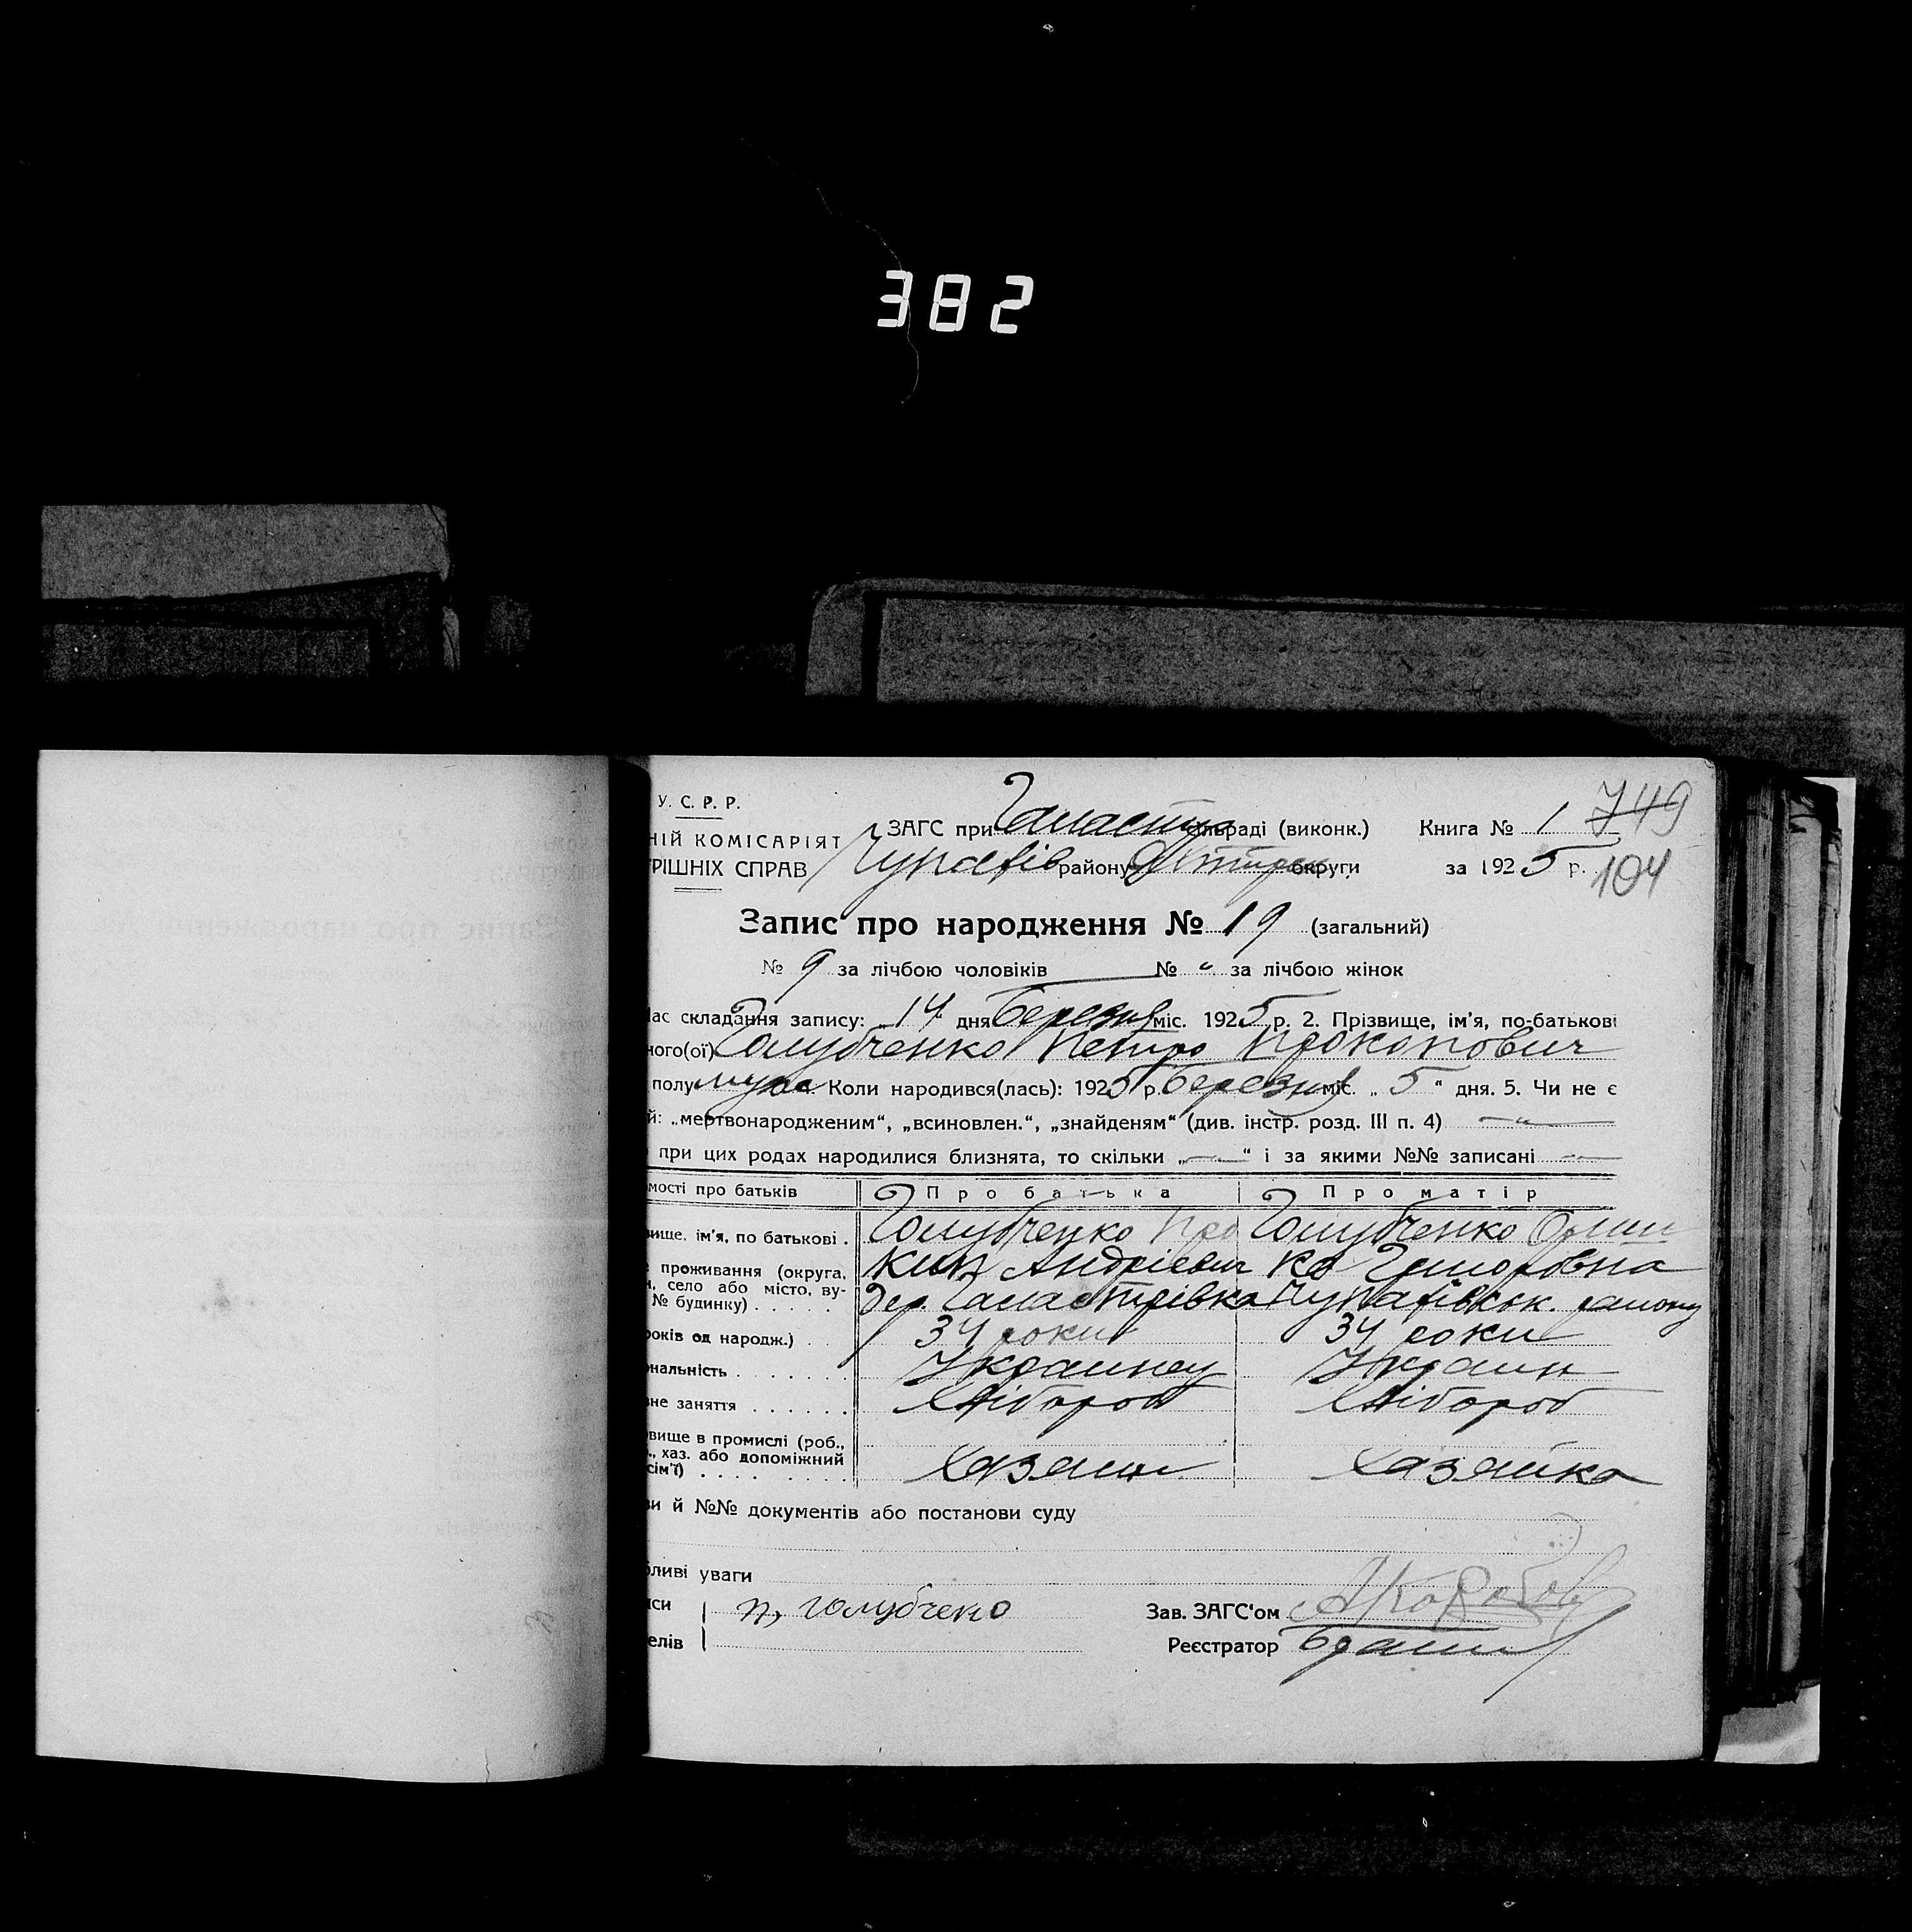 382
У. С. Р. Р.
НІЙ КОМІСАРІЯТ
РІШНІХ СПРАВ
ЗАГС при Галастр сільраді (виконк.) Книга № 1 749
Чупахів району Охтирськ округи за 1925 р. 104
Запис про народження № 19 (загальний)
№ 9 за лічбою чоловіків № " за лічбою жінок
ас складання запису: „14" дня Березня міс. 1925 р. 2. Прізвище, ім'я, по-батькові
ного(ої) Голубченко Петро Прокопович
полу муж 4. Коли народився(лась): 1925 р. березня міс. „5" дня. 5. Чи не є
й: „мертвонародженим", „всиновлен.", „знайденям" (див. інстр. розд. III п. 4) — " —
при цих родах народилися близнята, то скільки „—" і за якими №№ записані —
мості про батьків Про батька Про матір
вище, ім'я, по батькові . Голубченко Про Голубченко Орин
проживання (округа, кип Андрієвич ка
село або місто, ву- дер. Галастрівка Чупахівськ. району
№ будинку) . . . . .
років од народж.) . . 34 роки 34 роки
нальність . . . . . . Украинец Украин
не заняття . . . . . . Хлібороб Хлібороб
вище в промислі (роб.,
., хаз. або допоміжний Хазяин Хазяйка
сім'ї) . . . . . . . .
ви й №№ документів або постанови суду
бливі уваги
иси п, голубчено Зав. ЗАГС'ом АКоробов
елів Реєстратор